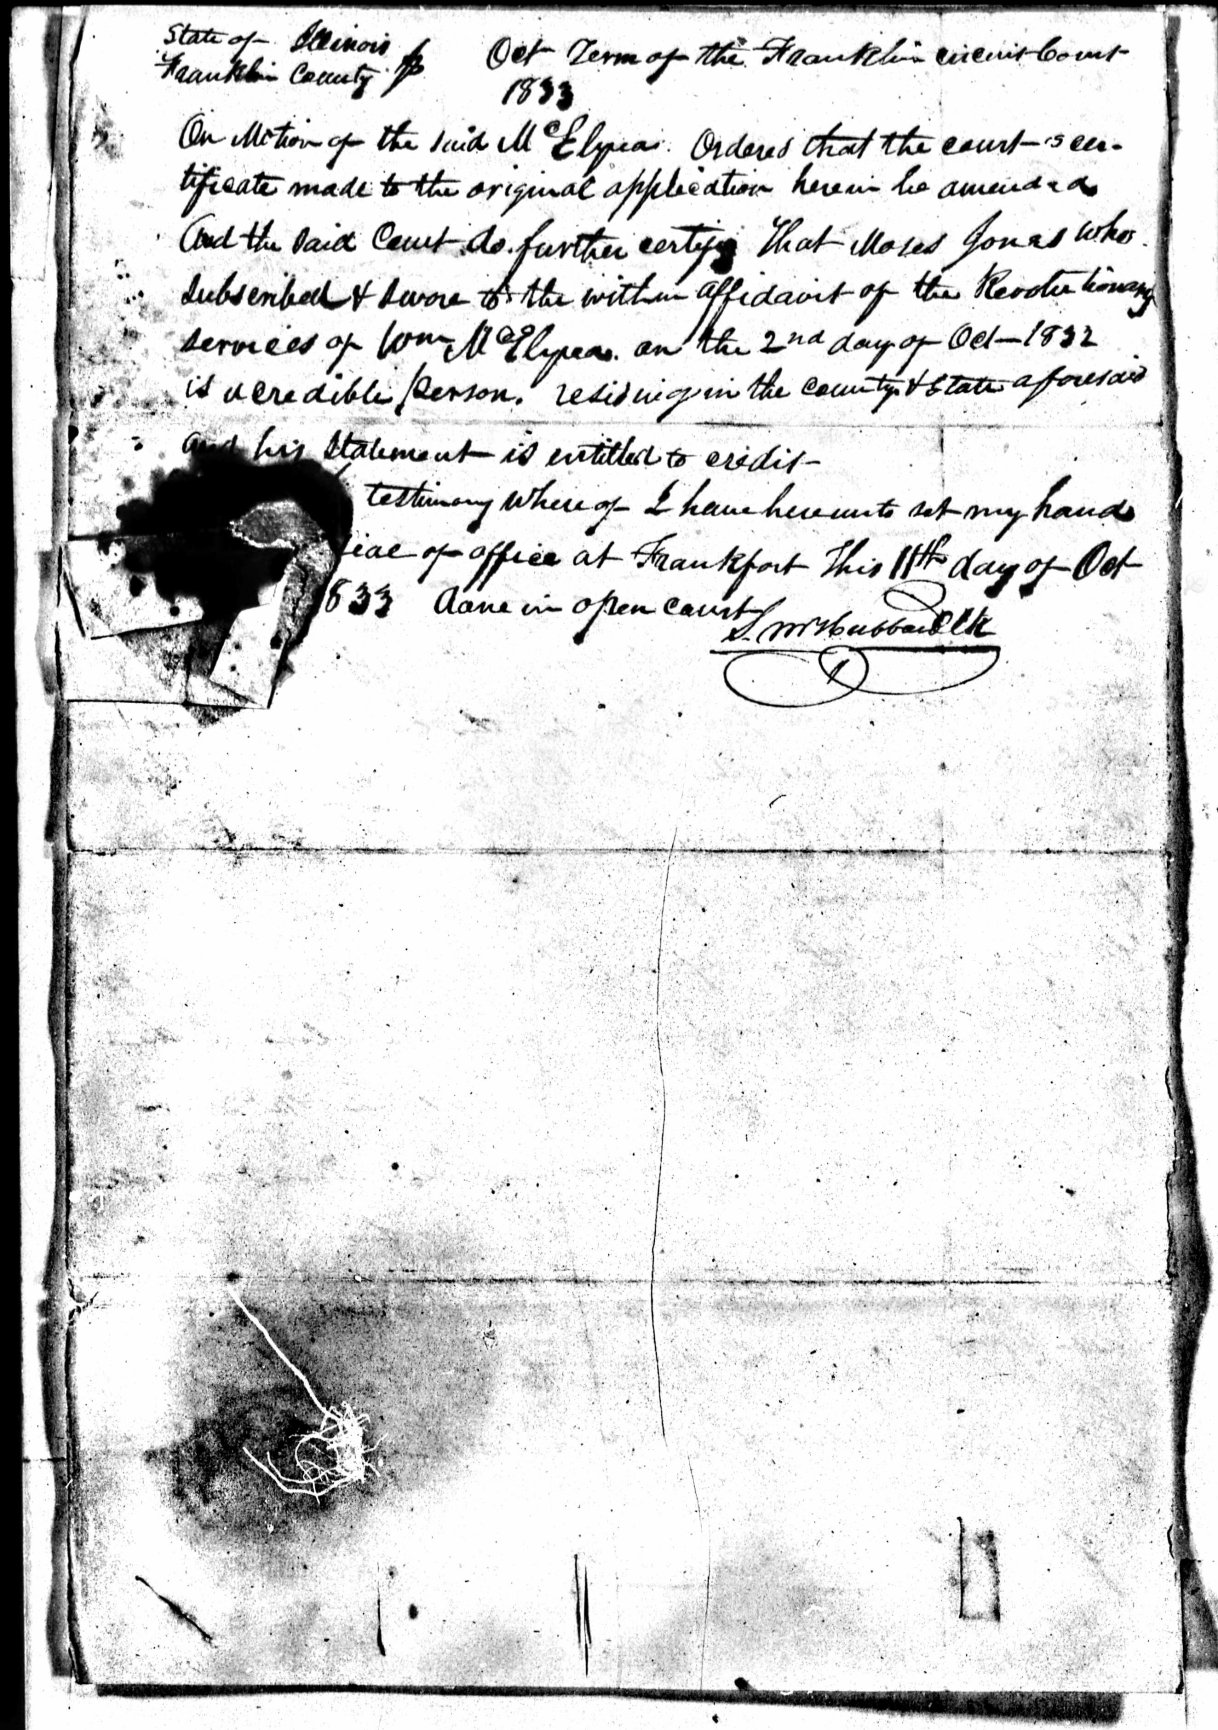 State of Illinois
Franklin County
Oct Term of the Franklin circuit Court
1833
On Motion of the said McElyea. Ordered that the court's cer-
tificate made to the original application herein be amended
And the said Court do further certify That Moses Jones who
subscribed & swore to the within affidavit of the Revolutionary
services of Wm McElyea on the 2nd day of Oct - 1832
is a credible person, residing in the county & State aforesaid
and his Statement is entitled to credit -
testimony where of I have hereunto set my hand
seal of office at Frankfort This 11th day of Oct
1833 done in open court
S. M. Hubbard Clk